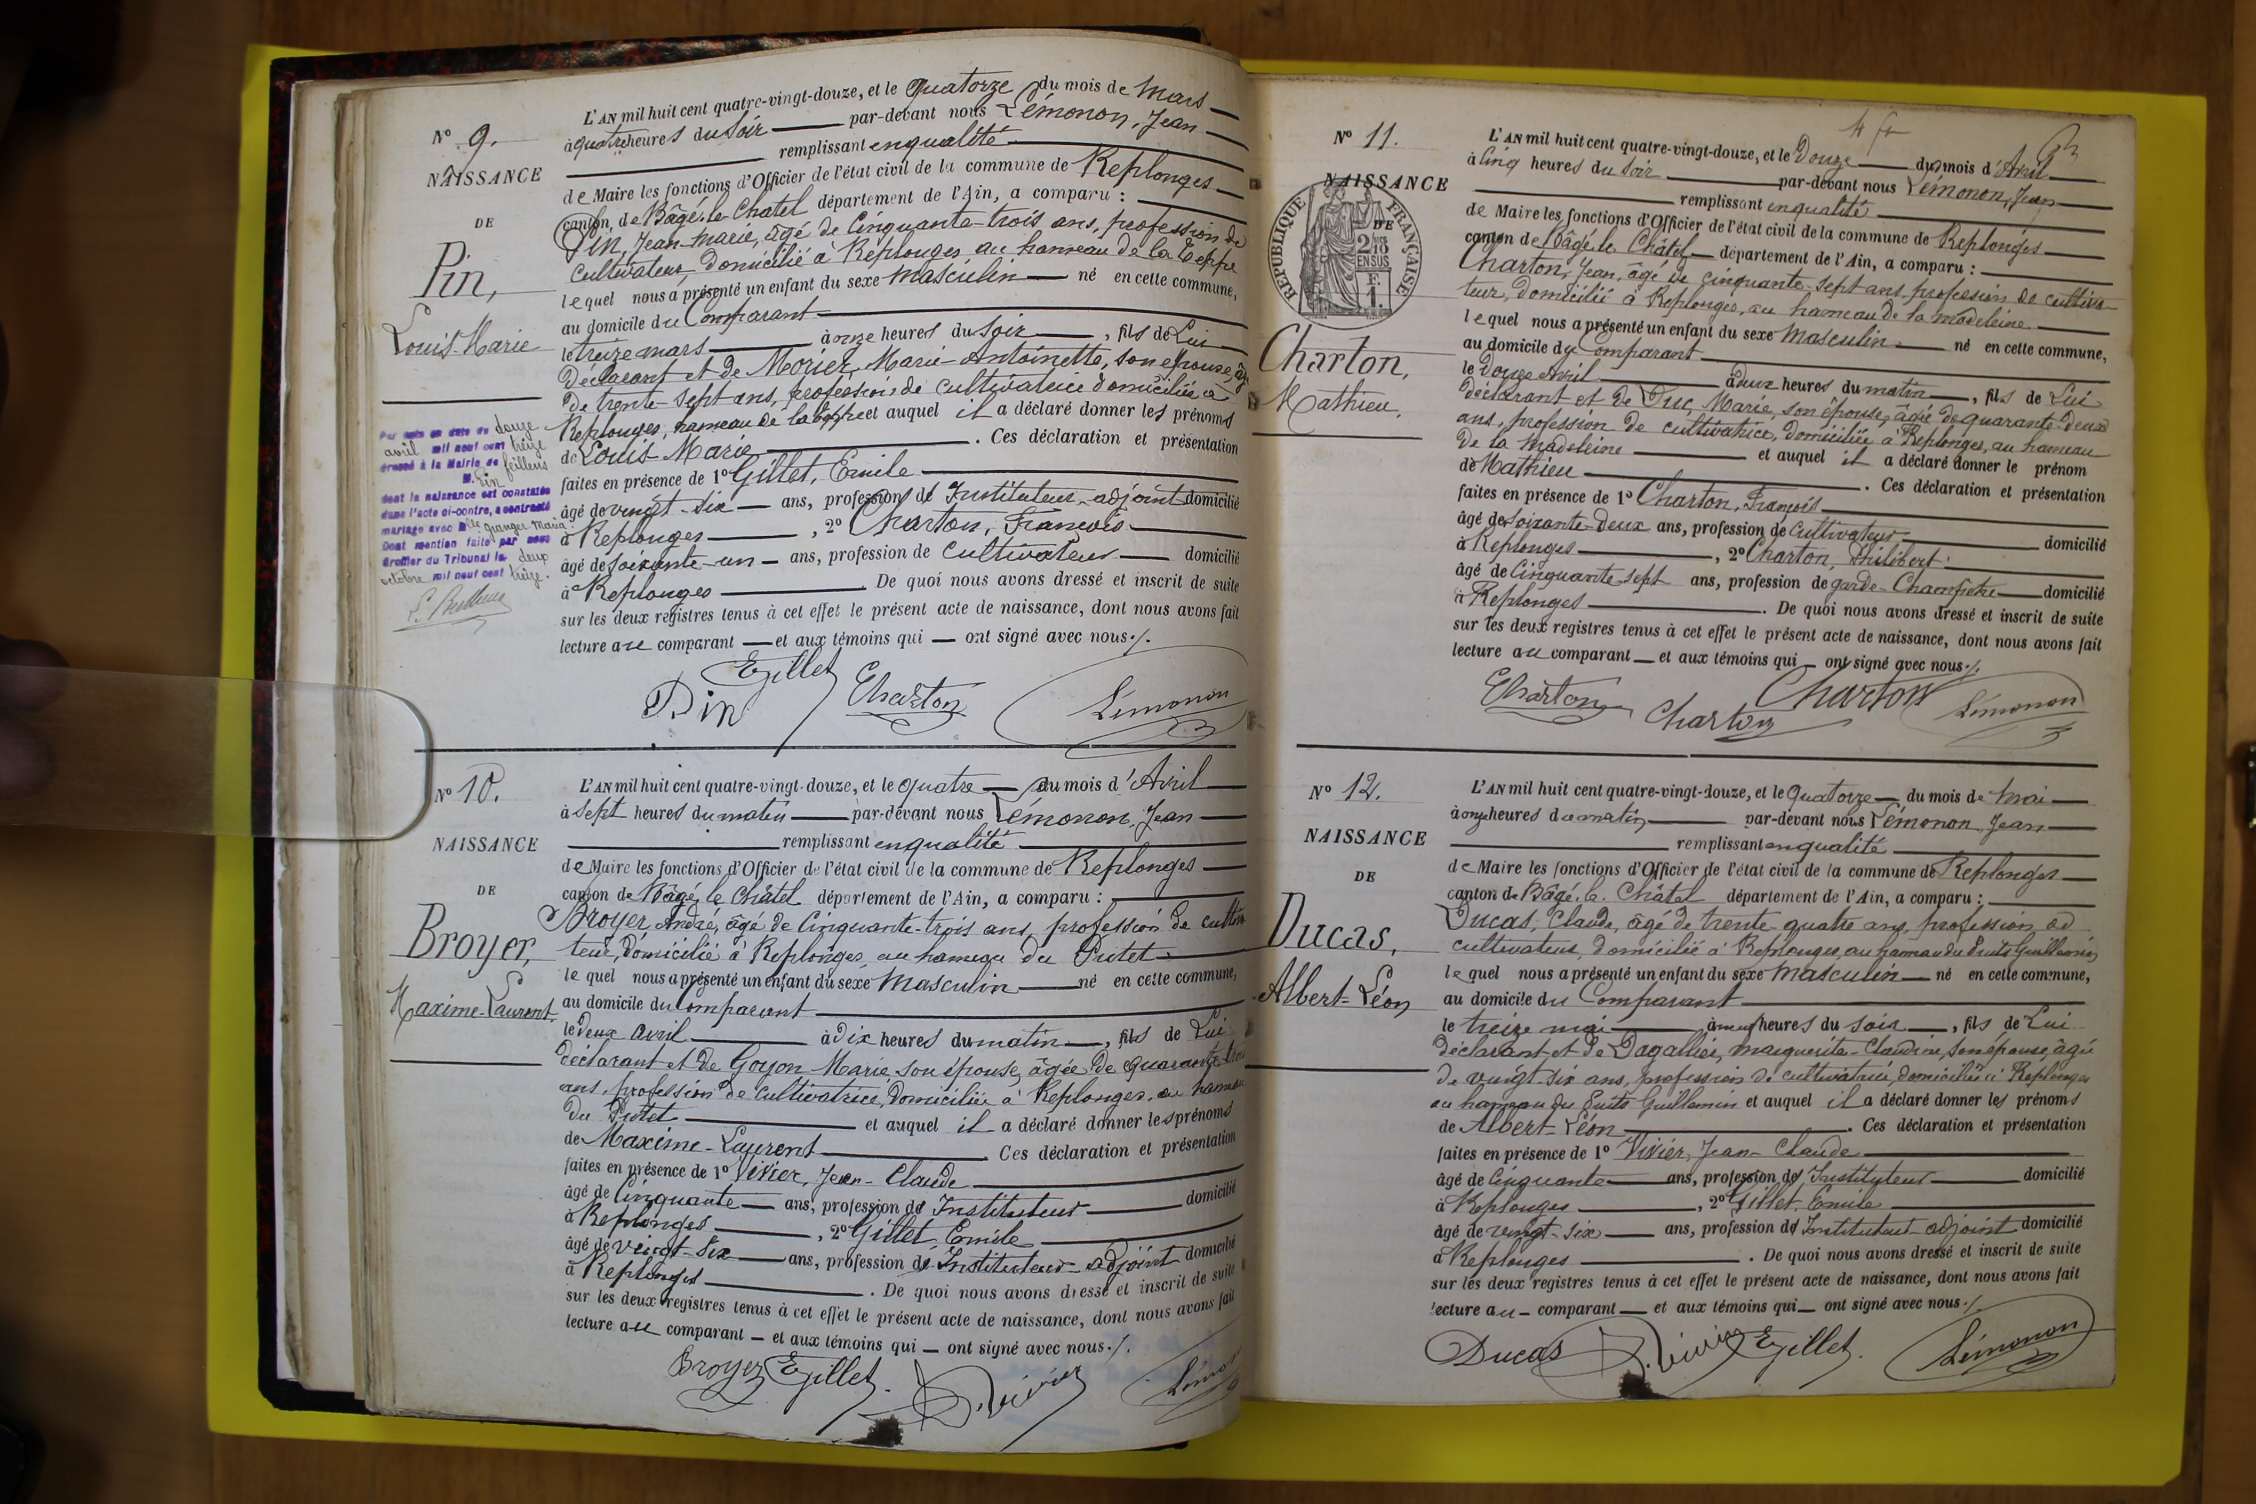 N° 9.
NAISSANCE
DE
Pin,
Louis-Marie
Par acte en date du douze
avril mil neuf cent treize
dressé à la Mairie de feillens
M. Pin
dont la naissance est constatée
dans l'acte ci-contre, a contracté
mariage avec Mlle Granger Maria.
Dont mention faite par nous
Greffier du Tribunal le deux
octobre mil neuf cent treize.
L'AN mil huit cent quatre-vingt-douze, et le quatorze du mois de Mars
à quatre heures du soir par-devant nous Lémonon, Jean
remplissant en qualité
de Maire les fonctions d'Officier de l'état civil de la commune de Replonges
canton de Bâgé-le-Châtel département de l'Ain, a comparu :
Pin, Jean-Marie, âgé de Cinquante-trois ans, profession de
cultivateur, domicilié à Replonges au hameau de la Teppe
lequel nous a présenté un enfant du sexe masculin né en cette commune,
au domicile du Comparant
le treize mars à onze heures du soir, fils de Lui
déclarant et de Morier, Marie-Antoinette, son épouse, âgé
de trente-sept ans, profession de cultivatrice domiciliée à
Replonges, hameau de la Teppe et auquel il a déclaré donner les prénoms
de Louis-Marie. Ces déclaration et présentation
faites en présence de 1° Gillet, Emile
âgé de vingt-six ans, profession de Instituteur-adjoint domicilié
à Replonges, 2° Charton, François
âgé de soixante-un ans, profession de cultivateur domicilié
à Replonges De quoi nous avons dressé et inscrit de suite
sur les deux registres tenus à cet effet le présent acte de naissance, dont nous avons fait
lecture au comparant et aux témoins qui ont signé avec nous./.
EGillet
Pin Charton Lémonon
N° 10.
NAISSANCE
DE
Broyer,
Maxime-Laurent
L'AN mil huit cent quatre-vingt-douze, et le quatre du mois d'Avril
à sept heures du matin par-devant nous Lémonon, Jean
remplissant en qualité
de Maire les fonctions d'Officier de l'état civil de la commune de Replonges
canton de Bâgé-le-Châtel département de l'Ain, a comparu :
Broyer, André, âgé de Cinquante-trois ans, profession de cultiva
teur, domicilié à Replonges, au hameau du Putet
lequel nous a présenté un enfant du sexe masculin né en cette commune,
au domicile du Comparant
le deux avril à dix heures du matin, fils de Lui
déclarant et de Goyon Marie, son épouse, âgée de quarante-trois
ans, profession de cultivatrice, domiciliée à Replonges, au hameau
du Putet et auquel il a déclaré donner les prénoms
de Maxime-Laurent Ces déclaration et présentation
faites en présence de 1° Vivier, Jean-Claude
âgé de Cinquante ans, profession de Instituteur domicilié
à Replonges, 2° Gillet, Emile
âgé de vingt-six ans, profession de Instituteur-adjoint domicilié
à Replonges. De quoi nous avons dressé et inscrit de suite
sur les deux registres tenus à cet effet le présent acte de naissance, dont nous avons fait
lecture au comparant et aux témoins qui ont signé avec nous./.
Broyer EGillet. Vivier Lémonon
4 fr
N° 11.
NAISSANCE
DE
RÉPUBLIQUE FRANÇAISE
Charton,
Mathieu.
L'AN mil huit cent quatre-vingt-douze, et le Douze du mois d'Avril
à Cinq heures du soir par-devant nous Lémonon, Jean
remplissant en qualité
de Maire les fonctions d'Officier de l'état civil de la commune de Replonges
canton de Bâgé-le-Châtel département de l'Ain, a comparu :
Charton, Jean, âgé de cinquante-sept ans, profession de cultiva-
teur, domicilié à Replonges, au hameau de la Madeleine
lequel nous a présenté un enfant du sexe masculin né en cette commune,
au domicile du Comparant
le Douze Avril à deux heures du matin, fils de Lui
déclarant et de Duc, Marie, son épouse, âgée de quarante-deux
ans, profession de cultivatrice, domiciliée à Replonges, au hameau
de la Madeleine et auquel il a déclaré donner le prénom
de Mathieu. Ces déclaration et présentation
faites en présence de 1° Charton, François
âgé de soixante-deux ans, profession de cultivateur domicilié
à Replonges, 2° Charton, Philibert
âgé de Cinquante-sept ans, profession de garde-Champêtre domicilié
à Replonges. De quoi nous avons dressé et inscrit de suite
sur les deux registres tenus à cet effet le présent acte de naissance, dont nous avons fait
lecture au comparant et aux témoins qui ont signé avec nous./.
Charton Charton Charton Lémonon
N° 12.
NAISSANCE
DE
Ducas,
Albert-Léon
L'AN mil huit cent quatre-vingt-douze, et le quatorze du mois de Mai
à onze heures du matin par-devant nous Lémonon, Jean
remplissant en qualité
de Maire les fonctions d'Officier de l'état civil de la commune de Replonges
canton de Bâgé-le-Châtel département de l'Ain, a comparu :
Ducas, Claude, âgé de trente-quatre ans, profession de
cultivateur, domicilié à Replonges, au hameau du Puits Guillemin
lequel nous a présenté un enfant du sexe masculin né en cette commune,
au domicile du Comparant
le treize mai à neuf heures du soir, fils de Lui
déclarant et de Dagallier, Marguerite-Claudine, son épouse, âgée
de vingt-six ans, profession de cultivatrice, domiciliée à Replonges
au hameau du Puits Guillemin et auquel il a déclaré donner les prénoms
de Albert-Léon. Ces déclaration et présentation
faites en présence de 1° Vivier, Jean-Claude
âgé de Cinquante ans, profession de Instituteur domicilié
à Replonges, 2° Gillet, Emile
âgé de vingt-six ans, profession de Instituteur-adjoint domicilié
à Replonges. De quoi nous avons dressé et inscrit de suite
sur les deux registres tenus à cet effet le présent acte de naissance, dont nous avons fait
lecture au comparant et aux témoins qui ont signé avec nous./.
Ducas Vivier EGillet. Lémonon